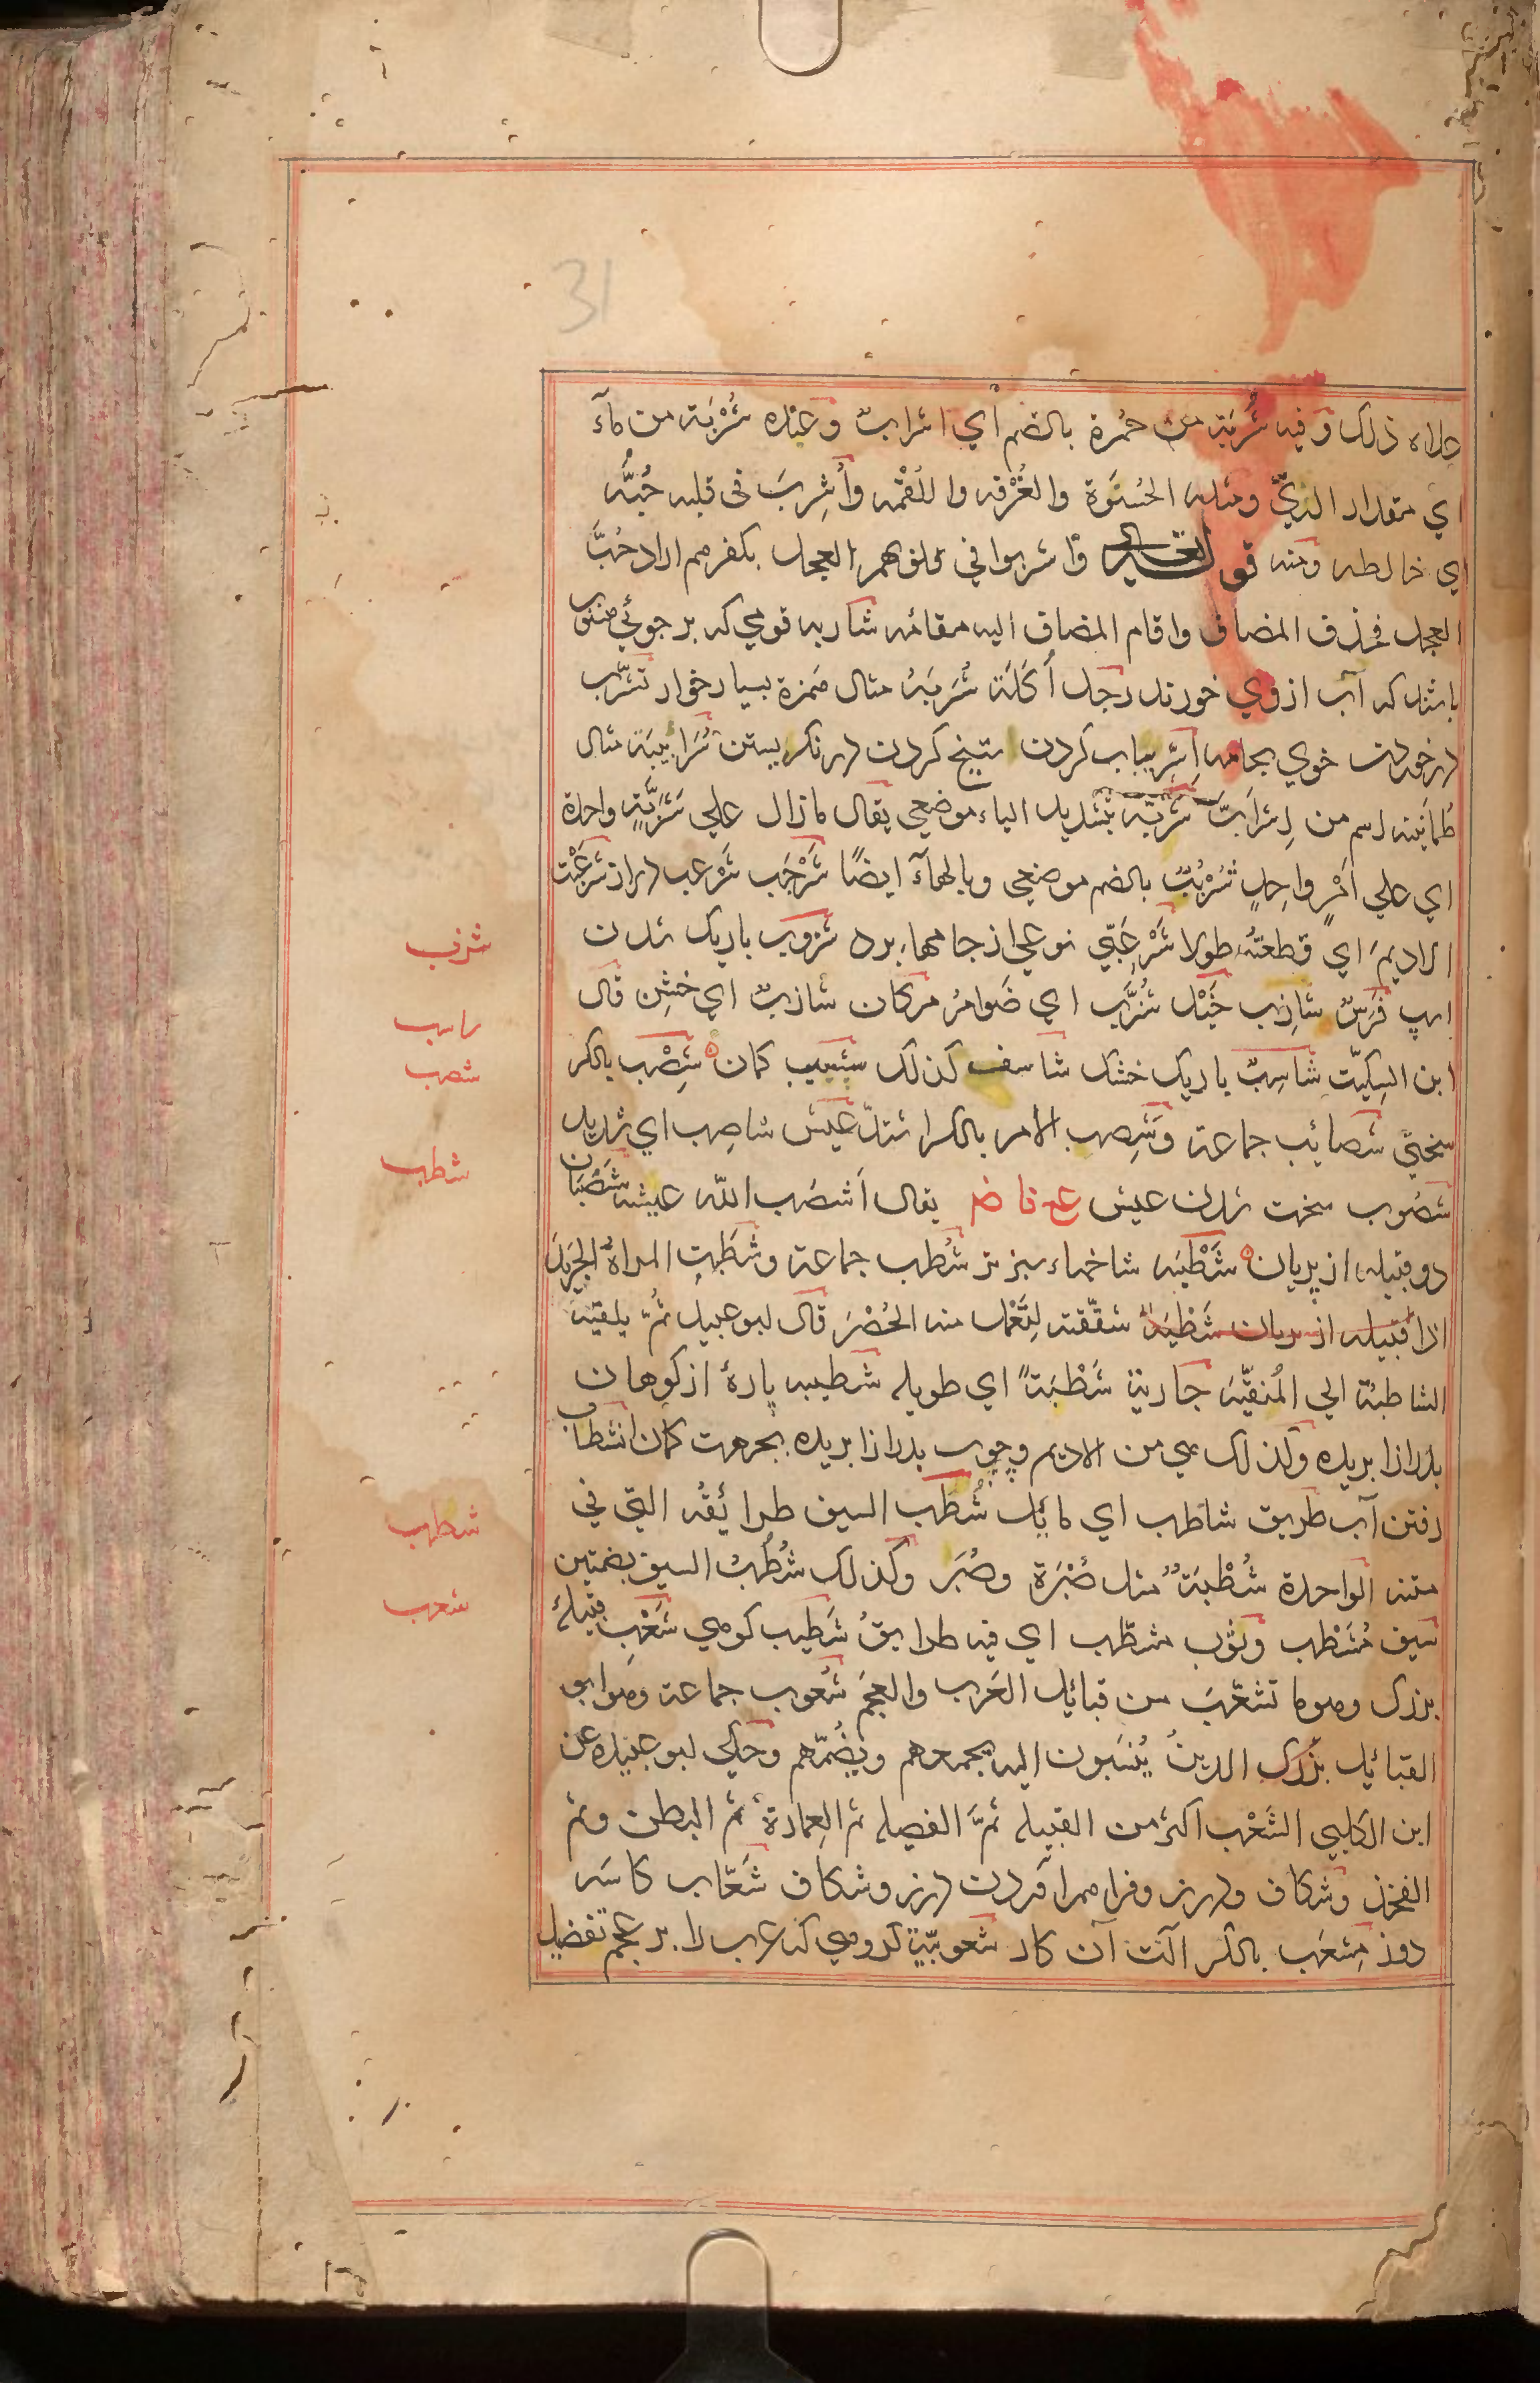 31
ذلك وفيه شُربَة من حُمرة بالضم أي اشرابٌ وعنده شُرْبَة من مآء
اي مقدار الريّ ومثله الحُسْوَة والغُرْفه واللُقْمه وأُشرِبَ في قلبه حُبُّه
اي خالطه ومنه قوله تعالى وَاشربوا في قلوبهم العجل بكفرهم اراد حُبَّ
العجل فحذف المضاف واقام المضاف اليه مقامه شاربه قومي كه بر جوئي
باشد كه آب ازوي خورند رجل أُكَلَة شُرَبَة مثال هُمَزة بسيار خوار تشرّب
در خوردن خوي بجامه اِشرِيباب كردن دراز كردن در نكريستن شُرَأبِيبَة مثال
طُمَانينه اسم من اِشرَابَّ شَرَبَّه بتشديد الباء موضعي يقال مازال علي شَرَبَّةٍ واحدة
اي علي اَمْرٍ واحِدٍ شُرْبُبٌ بالضم موضعي وبالهآء ايضًا شَرْجَب شَرْعب دراز شَرعَبْت
الاديمَ اي قطعتُه طولا شَرْعَبّي نوعي از جامهاء برد شزوب باريك شدن
اسپ فَرَسٌ شازِب خَيْل شُزَّب اي ضَوامرُ مكان شازبٌ اي خشِن قال
ابن السِكيّت شاسِبٌ باريك خشك شاسف كذلك شسيب كمان شِصْب بالكسر
سختي شصائب جماعة وشَصِب الامر بالكسر اشتدّ عيش شاصِب اي شديد
شصُوب سخت شدن عيش ع ف ض يقال اَشصَب اللّه عيشه شَصْبَان
دو قبيله از پريان شَطْبَه شاخهاء سبز تر شُطب جماعة وشطَبتِ المراةُ الجَريدَ
اذا قبيله از پريان شَطْبَه شقّقته لِتَعْمل منه الحُصْرَ قال ابو عبيد ثُمّ يلقيه
الشاطبة الي المُنَقّيَه جارية شَطْبَةٌ اي طويله شطيبه پارۀ از كوهان
بدرازا بريده وكذلك هي من الاديم وچوب بدرازا بريده بجرمت كمان انشطاب
رفتن آب طريق شاطب اي مائِل شُطَب السيف طرائقُه التي في
متنه الواحدة شُطْبَةٌ مثل صُبْرَة وصُبَر وكذلك شُطُبُ السيف بضمتين
سيف مُشَطْب وثوب مشطّب اي فيه طرايقُ شَطِيب كوهي شَعْب قبيلۀ
بزرك وهو ما تشعّبَ من قبائِل العَرب والعجم شُعوب جماعة وهو ابو
القبائِل بزرك الذين يُنسَبون اليه يجمعهم ويضُمّهم وحكي ابو عبيده عن
ابن الكلبي الشَعْب اكثر من القبيله ثمَّ الفصيله ثم العِمَارة ثم البطن وثم
الفخِذ وشكاف ودرز وفراهم آوردن درز وشكاف شَعّاب كاسَه
دوز مِشعَب بالكسر آلت آن كار شعوبيّة كروهي كه عرب را بر عجم تفضيل
شزب
راسب
شصب
شطب
شطب
شعب